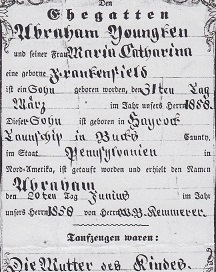 Den
Ehegatten
Abraham Youngken
und seiner Frau Maria Catharina
eine geborne Frankenfield
ist ein Sohn geboren worden, den 31ten Tag
März im Jahr unsers Herrn 1858.
Dieser Sohn ist geboren in Haycock
Taunschip in Bucks County,
im Staat Pennsylvanien in
Nord-Amerika, ist getauft und erhielt den Namen
Abraham
den 20ten Tag Junius im Jahr
unsers Herrn 1858 von Herrn W.B. Kemmerer.
Taufzeugen waren:
Die Mutter des Kindes.